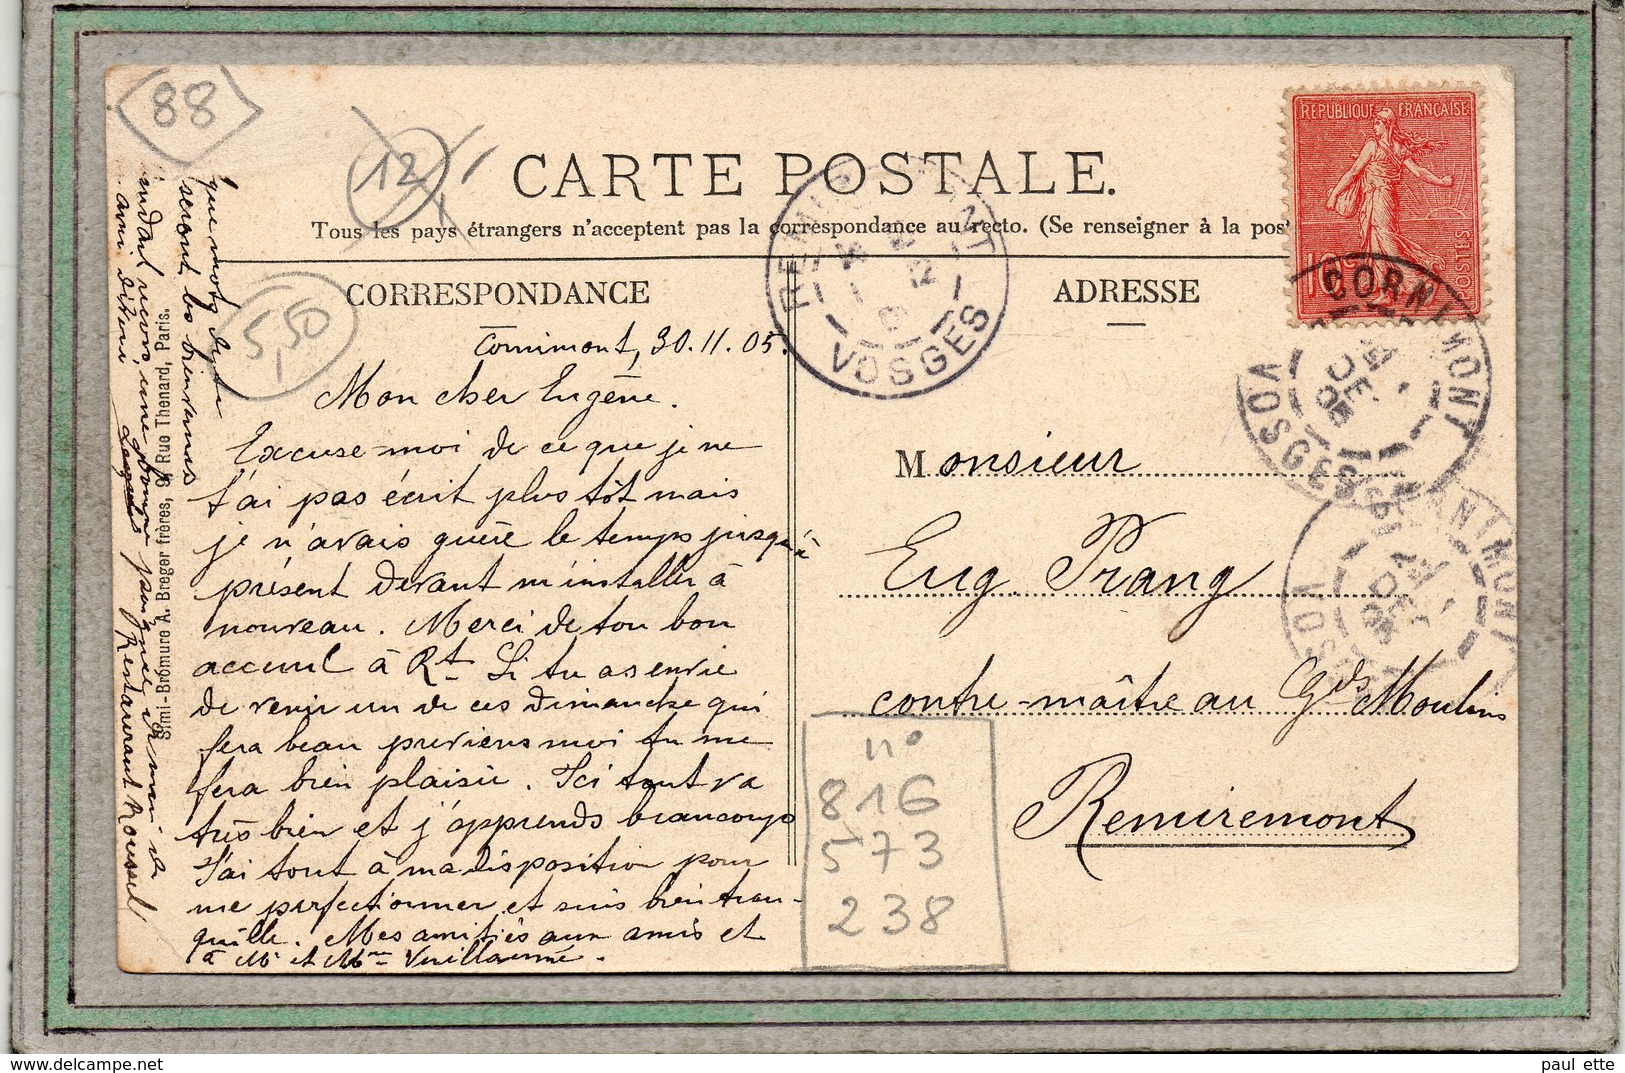 88
12
5,50
CARTE POSTALE.
Tous les pays étrangers n'acceptent pas la correspondance au recto. (Se renseigner à la pos
CORRESPONDANCE
ADRESSE
RÉPUBLIQUE FRANÇAISE
10
POSTES
CORNIMONT
VOSGES
REMIREMONT
VOSGES
Cornimont, 30.11.05.
Mon cher Eugène.
Excuse-moi de ce que je ne
t'ai pas écrit plus tôt mais
je n'avais guère le temps jusqu'à
présent devant m'installer à
nouveau. Merci de ton bon
accueil à Rt. Si tu as envie
de venir un de ces dimanche qui
fera beau previens moi tu me
fera bien plaisir. Ici tout va
très bien et j'apprends beaucoup
J'ai tout à ma disposition pour
me perfectionner et suis bien tran-
quille. Mes amitiés aux amis et
à Mr et Mme Vuillaume.
que mots de tu
seront les bienvenus
une
ami
Restaurant Roussel
Simi-Bromure A. Breger frères, 9, Rue Thenard, Paris.
Monsieur
Eug. Prang
contre-maître au Gds Moulins
Remiremont
n°
816
573
238
paul ette
delcampe.net